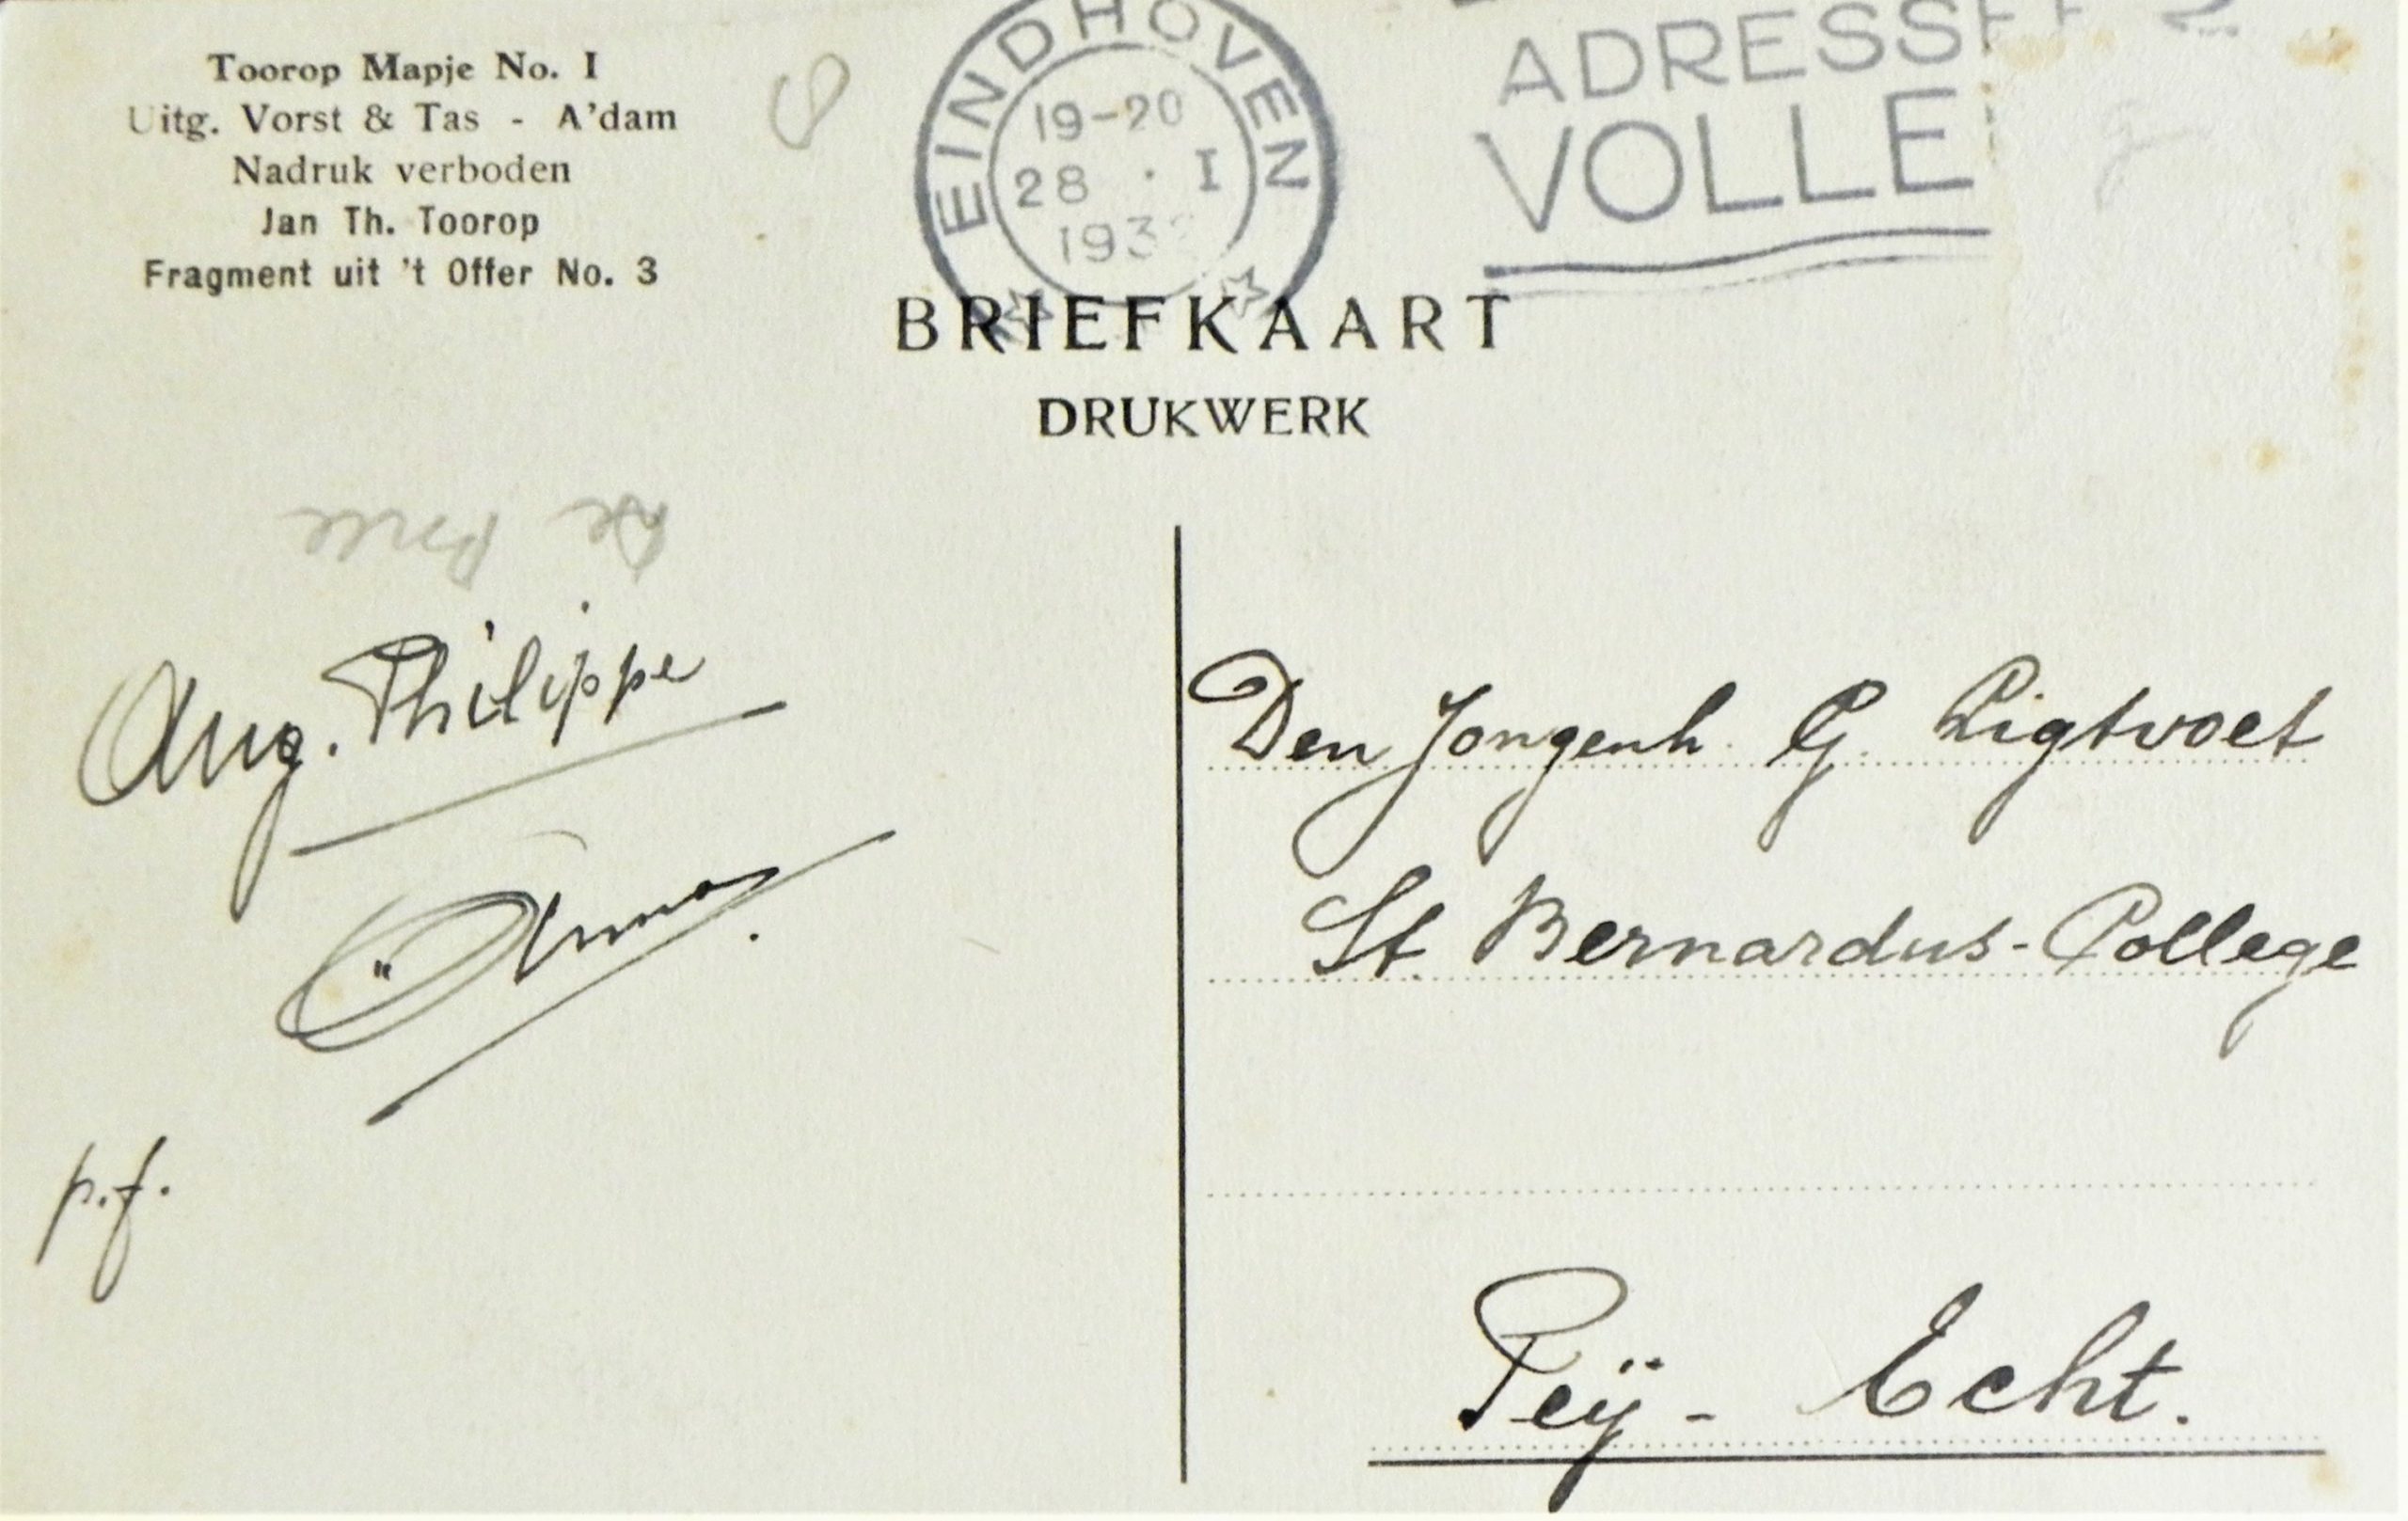 Toorop Mapje No. I
Uitg. Vorst & Tas - A'dam
Nadruk verboden
Jan Th. Toorop
Fragment uit 't Offer No. 3
EINDHOVEN
19-20
28 · I
193
ADRESSE
VOLLE
BRIEFKAART
DRUKWERK
Aug. Philippe
p.f.
Den Jongenh. G. Ligtvoet
St. Bernardus-College
Peÿ - Echt.